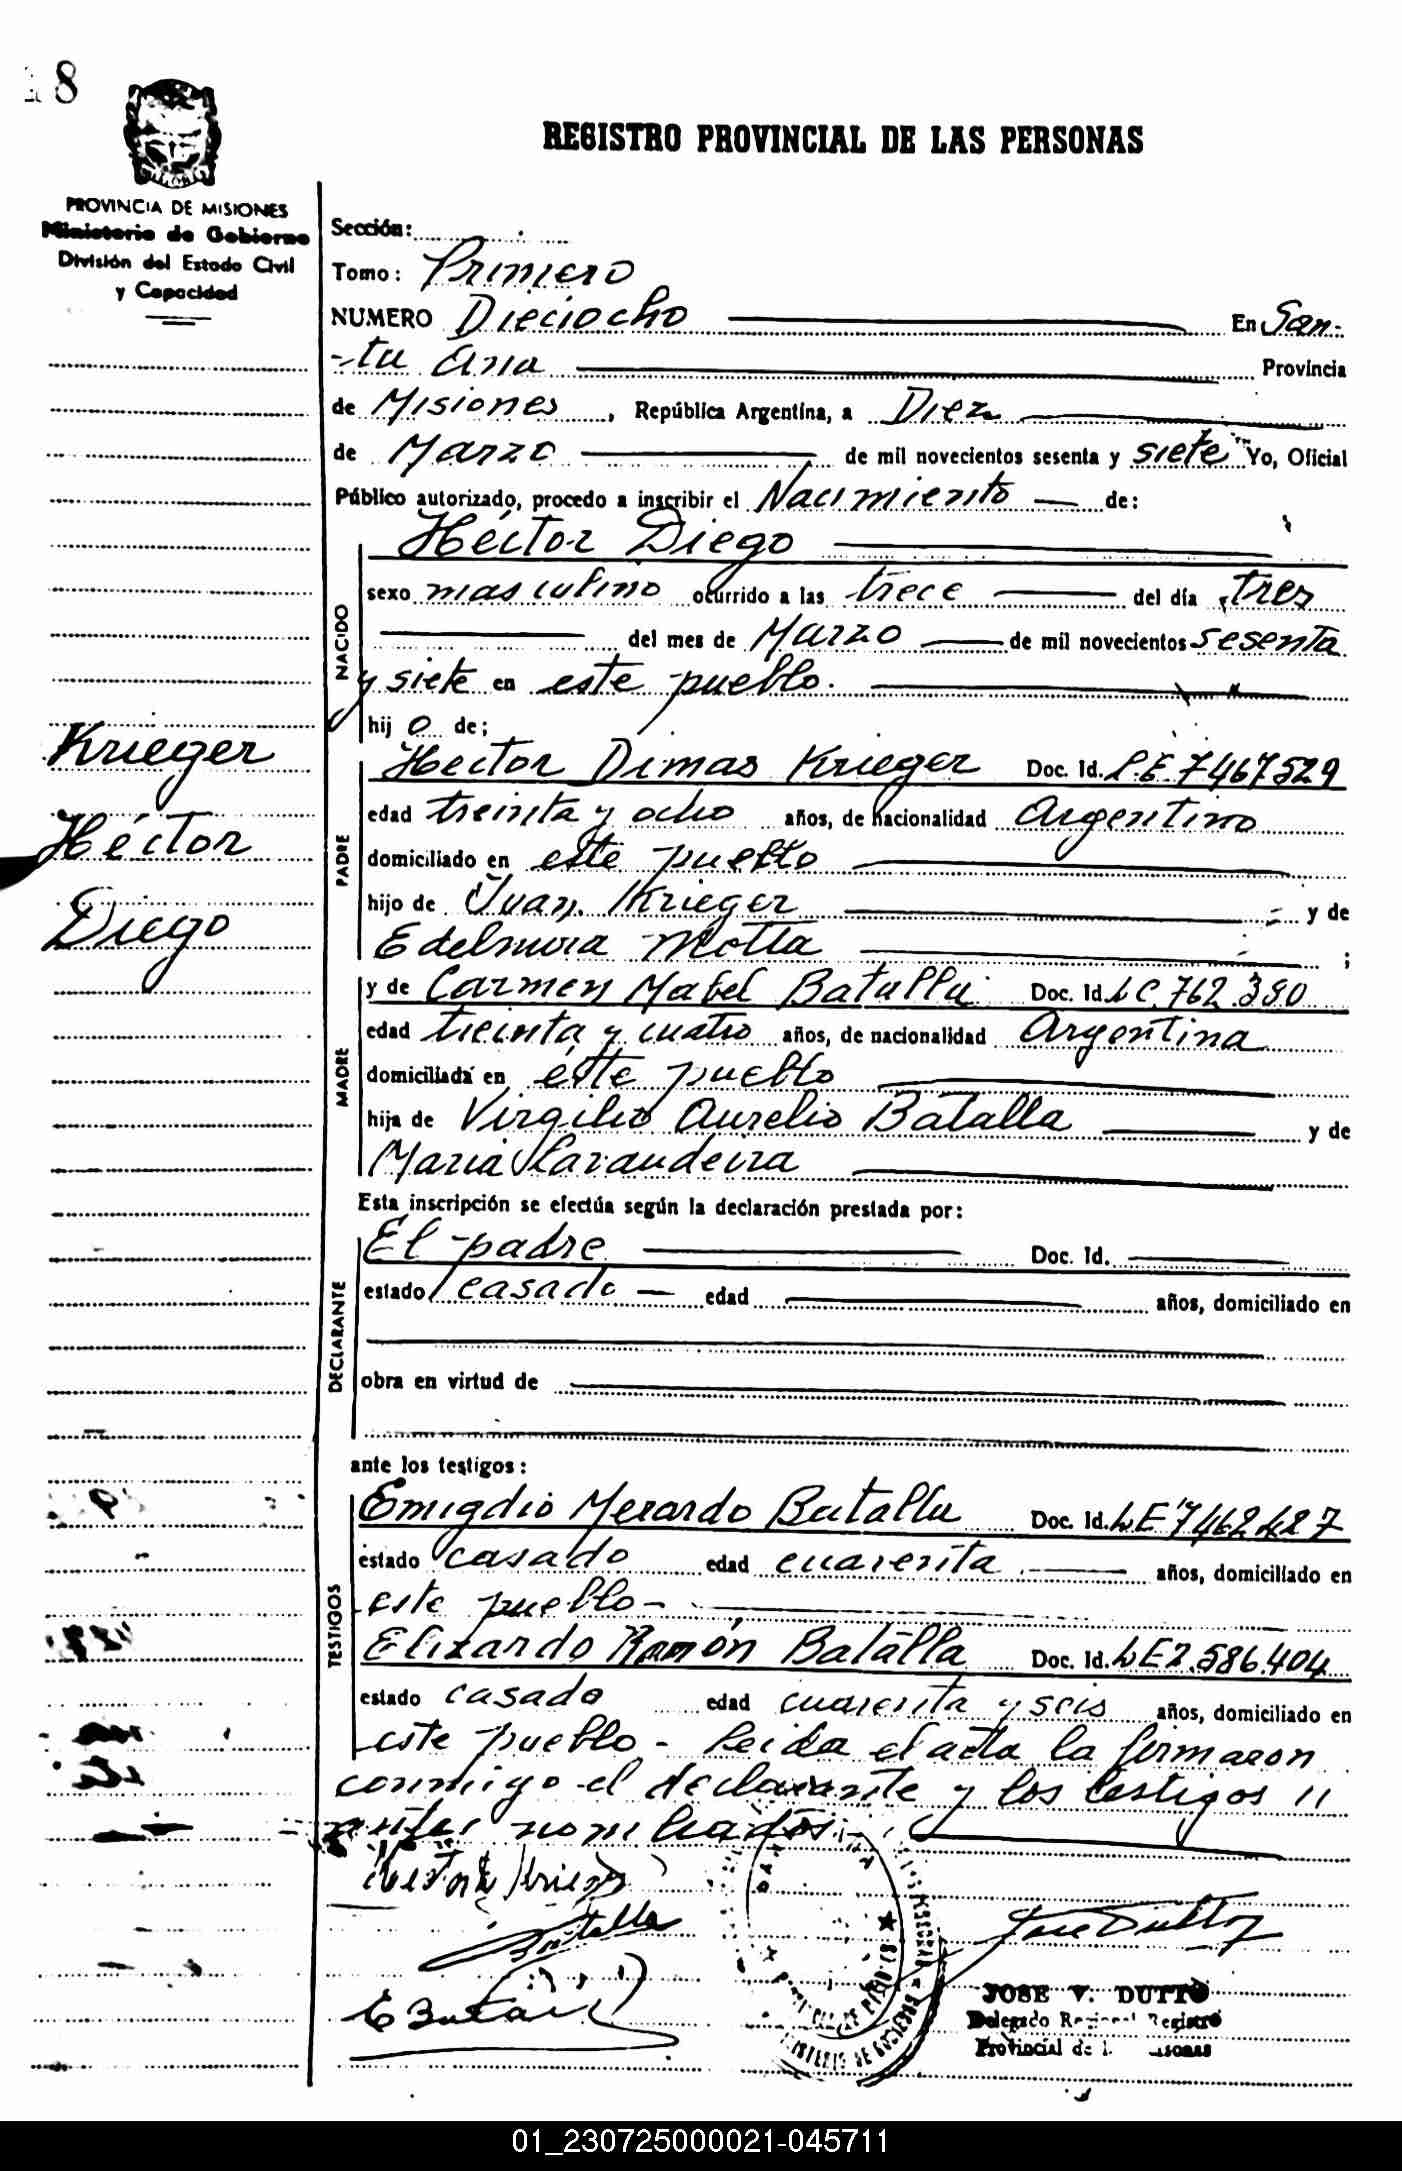 18
REGISTRO PROVINCIAL DE LAS PERSONAS
PROVINCIA DE MISIONES
Ministerio de Gobierno
División del Estado Civil
y Capacidad
Sección:
Tomo: Primero
NUMERO Dieciocho En San-
-ta Ana Provincia
de Misiones, República Argentina, a Diez
de Marzo de mil novecientos sesenta y siete Yo, Oficial
Público autorizado, procedo a inscribir el Nacimiento de:
Héctor Diego
NACIDO
sexo masculino ocurrido a las trece del día tres
del mes de Marzo de mil novecientos sesenta
y siete en este pueblo.
hijo de;
Krieger
Héctor
Diego
PADRE
Hector Dimas Krieger Doc. Id. L.E. 7467529
edad treinta y ocho años, de nacionalidad Argentino
domiciliado en este pueblo
hijo de Juan Krieger y de
Edelmira Motta ;
MADRE
y de Carmen Mabel Batalla Doc. Id. LC. 762.380
edad treinta y cuatro años, de nacionalidad Argentina
domiciliada en este pueblo
hija de Virgilio Aurelio Batalla y de
Maria
Esta inscripción se efectúa según la declaración prestada por:
DECLARANTE
El padre Doc. Id.
estado casado edad años, domiciliado en
obra en virtud de
ante los testigos:
TESTIGOS
Emigdio Merardo Batalla Doc. Id. LE 7462427
estado casado edad cuarenta años, domiciliado en
este pueblo-
Elizardo Ramón Batalla Doc. Id. LE 2.586.404
estado casado edad cuarenta y seis años, domiciliado en
este pueblo - Leida el acta la firmaron
conmigo el declarante y los testigos
antes nombrados.
Batalla
E Batalla
JOSE V. DUTTO
Delegado Regional Registro
Provincial de l. Personas
MINISTERIO DE GOBIERNO
01_230725000021-045711